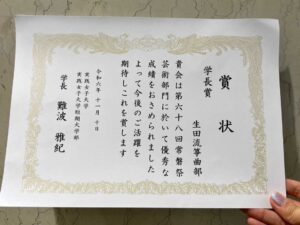 賞状
学長賞
生田流箏曲部
貴会は第六十八回常磐祭
芸術部門に於いて優秀な
成績をおさめられました
よって今後のご活躍を
期待しこれを賞します
令和六年十一月十日
実践女子大学
実践女子大学短期大学部
学長 難波雅紀